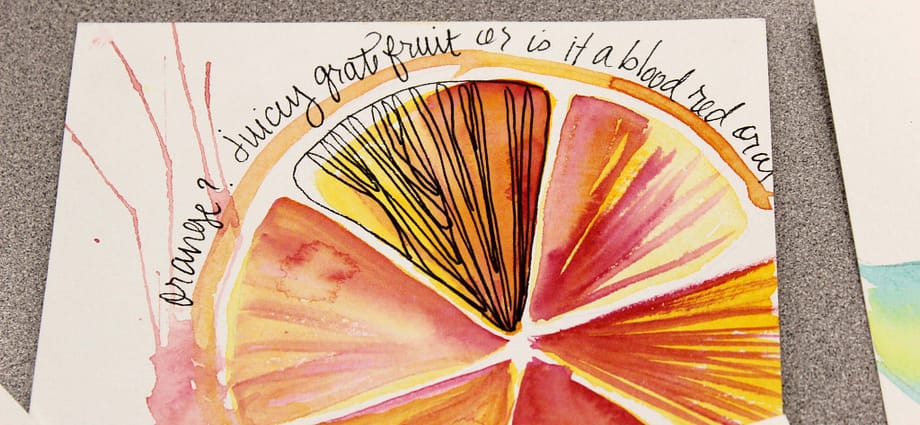 orange? Juicy gratefruit or is it a blood red ora